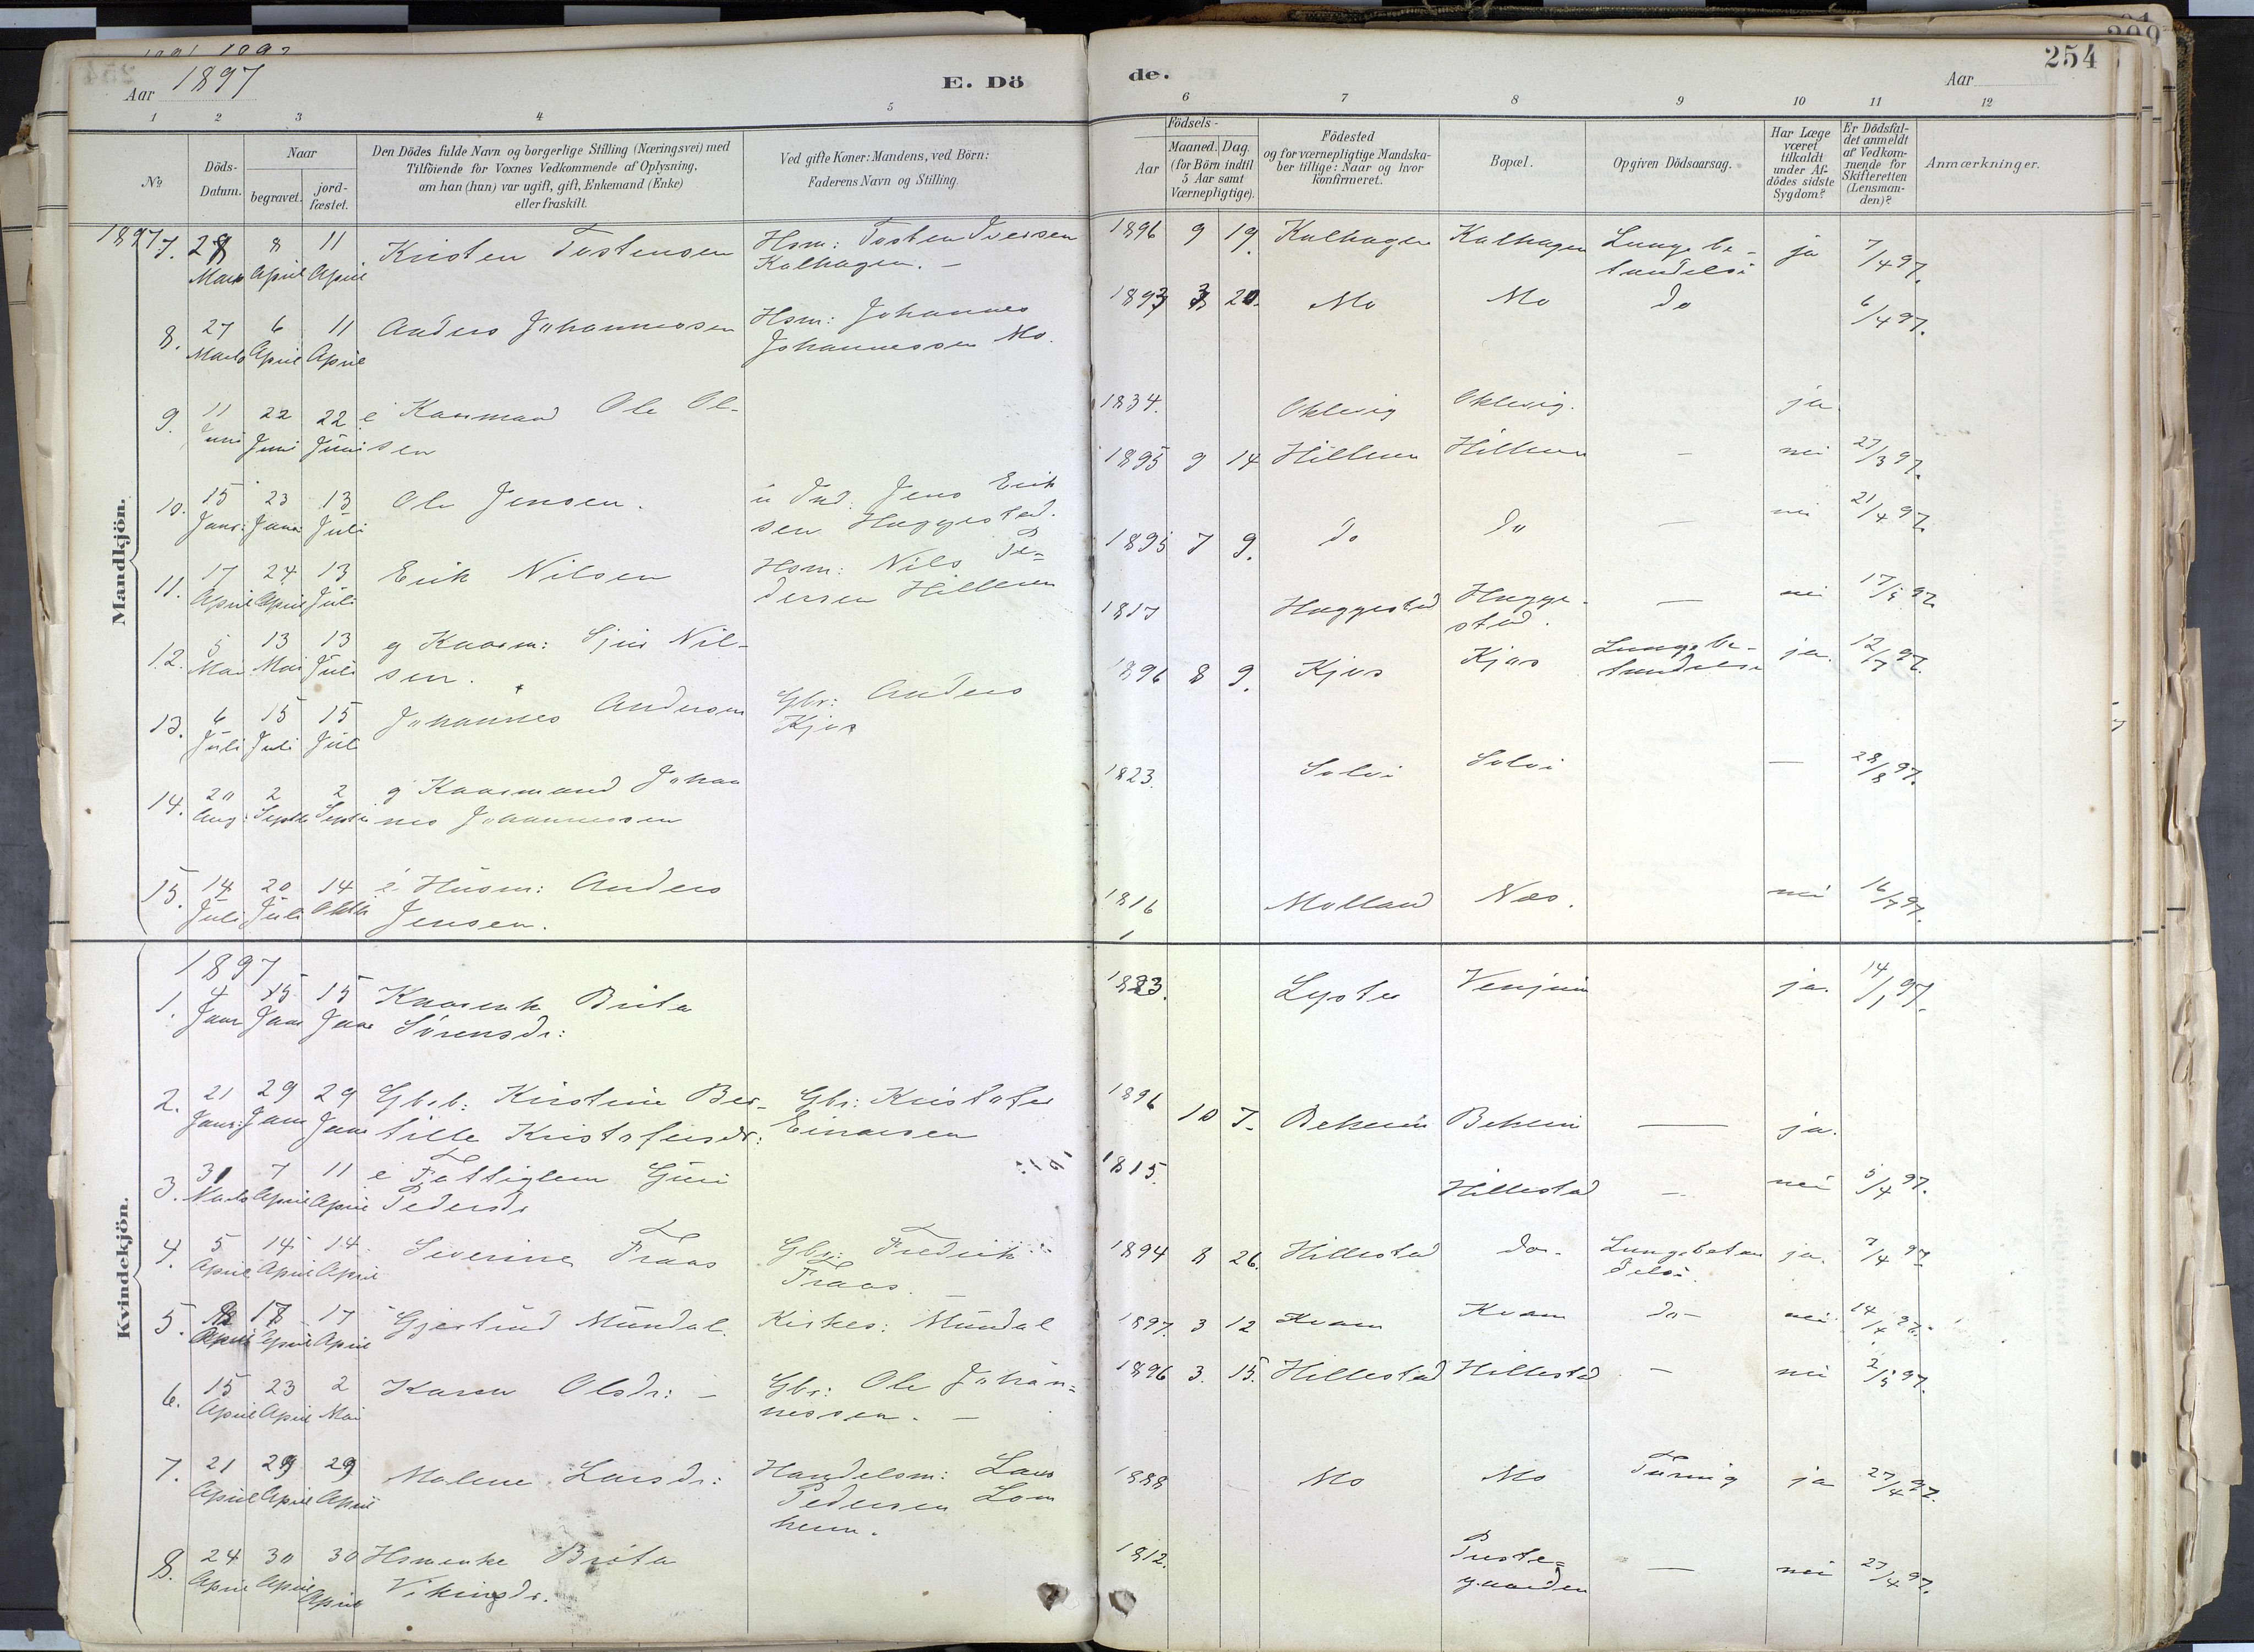 254
Aar 1897
E. Dö
de.
Aar
1 2 3 4 5 6 7 8 9 10 11 12
№
Döds-
Datum.
Naar
begravet.
jord-
fæstet.
Den Dödes fulde Navn og borgerlige Stilling (Næringsvei) med
Tilföiende for Voxnes Vedkommende af Oplysning,
om han (hun) var ugift, gift, Enkemand (Enke)
eller fraskilt.
Ved gifte Koner: Mandens, ved Börn:
Faderens Navn og Stilling.
Födsels-
Aar
Maaned. Dag.
(for Börn indtil
5 Aar samt
Værnepligtige).
Födested
og for værnepligtige Mandska-
ber tillige: Naar og hvor
konfirmeret.
Bopæl.
Opgiven Dödsaarsag.
Har Læge
været
tilkaldt
under Af-
dödes sidste
Sygdom?
Er Dödsfal-
det anmeldt
af Vedkom-
mende for
Skifteretten
(Lensman-
den)?
Anmærkninger.
Mandkjön.
1897
7. 8 April 11 April Kristen Tostensen Hsm: Tosten Iversen
Kalhagen. – 1896 9 19. Kalhagen Kalhagen Lungebe-
tændelse ja 7/4 97.
8. 27 Marts 6 April 11 April Anders Johannessen Hsm: Johannes
Johannessen Mo. 1893 3 20. Mo Mo do 6/4 97.
9. 11 Juni 22 Juni 22 Juni e Kaarmand Ole Ol-
sen 1834. Oklevig Oklevig. ja
10. 15 Janr: 23 Janr: 13 Juli Ole Jensen. Ind: Jens Erik
sen Haggestad. 1895 9 14 Hilleren Hilleren – nei 27/3 97.
11. 17 April 24 April 13 Juli Erik Nilsen Hsm: Nils Pe-
dersen Hilleren 1895 7 9. do do – nei 21/4 97.
12. 5 Mai 13 Mai 13 Juli g Kaarm: Sjur Nil-
sen. 1817 Haggestad Hagge-
stad. – nei 17/5 97.
13. 6 Juli 15 Juli 15 Juli Johannes Andersen Gbr: Anders
Kjos 1896 8 9. Kjos Kjos Lungebe-
tændelse ja. 12/7 97.
14. 20 Aug: 2 Septbr 2 Septbr g Kaarmand Johan
nes Johannessen 1823. Solvi Solvi – 28/8 97.
15. 14 Juli 20 Juli 14 Oktbr e Husm: Anders
Jensen. 1816 Molland Næs. nei 16/7 97.
Kvindekjön.
1897
1. 4 Janr 15 Janr 15 Janr Kaarenke Brita
Sörensdr: Lyster Venjum ja. 14/1 97.
2. 21 Janr: 29 Janr 29 Janr Gbrb: Kristine Ber-
tille Kristofersdr: Gbr: Kristofer
Einarsen 1896 10 7. Beheim Beheim – ja.
3. 31 Marts 7 April 11 April e Fattiglem Guri
Pedersdr 1815. Hillestad – nei 5/4 97.
4. 5 April 14 April 14 April Severine Fraas Gbr: Fredrik
Fraas. 1894 8 26. Hillestad do. Lungebetæn
delse. ja. 7/4 97.
5. April 17 April 17 April Gjertrud Mundal. Kirkes: Mundal 1897. 3 12 Kvam Kvam do – nei 14/4 97.
6. 15 April 23 April 2 Mai Karen Olsdr: – Gbr: Ole Johan-
nessen. – 1896 3. 15. Hillestad Hillestad – nei 2/5 97.
7. 21 April 29 April 29 April Malene Larsdr: Handelsm: Lars
Pedersen Lom
heim. 1888 Mo Mo Tæring ja 27/4 97.
8. 24 April 30 April 30 April Hsmenke Brita
Vikingsdr. 1812. Preste-
gaarden – nei 27/4 97.